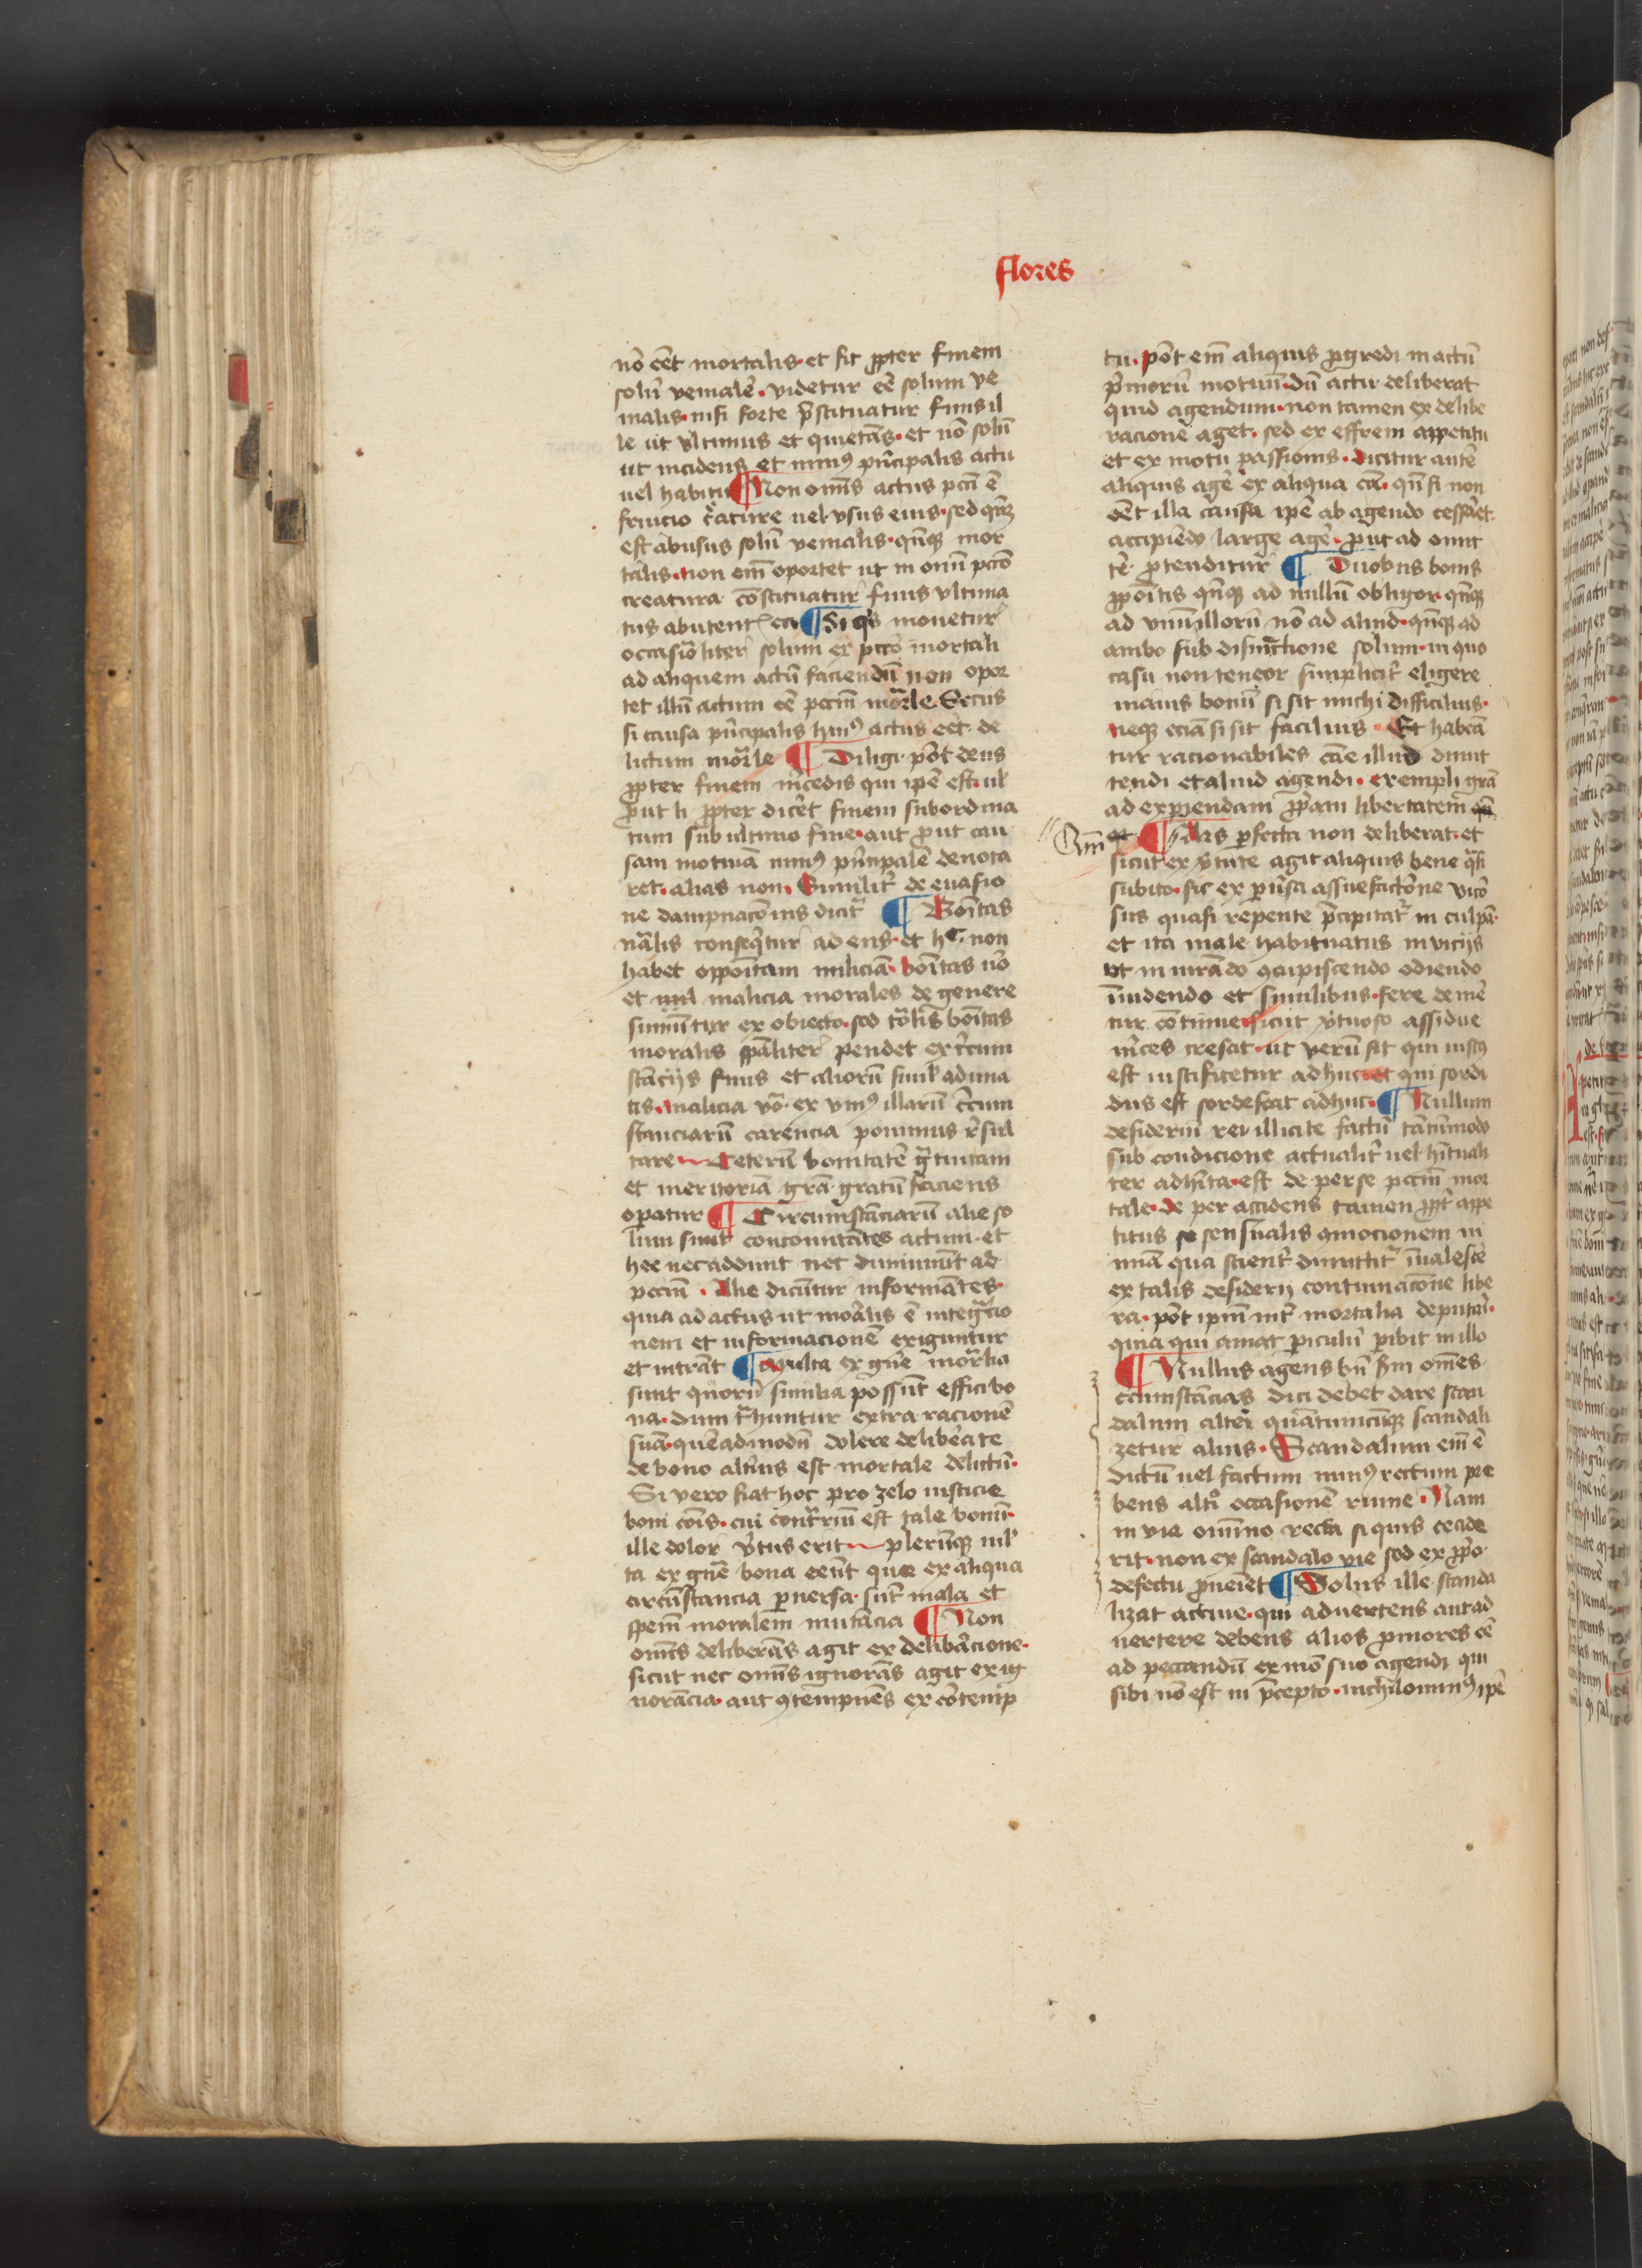 flores
nō eēt mortalis· et sit ꝓpter finem
solū venialē· videtur eē solum ve
nialis· nisi forte p̄stituatur finis il
le ut vltimus et quietās· et nō solū
ut incidens et minꝰ pͥncipalis actu
uel habitu ¶ Non om̄s actus pctī ē
fruicio c̄ature uel vsus eius· sed qn̄qꝫ
est abusus solū venialis· qn̄qꝫ mor
talis· non em̄ oportet ut in om̄i pctō
creatura cōstituatur finis vltima
tus abutent ea ¶ Si qͥs mouetur
occasiōliter solum ex pctō mortali
ad aliquem actū faciendū non opor
tet illū actum eē pctm̄ mōrle Secus
si causa pͥncipalis hmͥꝰ actus eēt de
lictum mōrle ¶ Diligi pōt deus
ꝓpter finem m̄cedis qui ip̄e est· ul
ꝓut li ꝓpter dicēt finem subordina
tum sub ultimo fine· aut ꝓut cau
sam motiuā minꝰ pͥncipalē denota
ret· alias non· Similit̄ de euasio
ne dampnacōnis dicit̄ ¶ Boītas
nālis conseqͥtur ad ens· et hͨ non
habet oppoītam maliciā· boītas uō
et malicia morales de genere
sumūtur ex obiecto· sed tōlis boītas
moralis sp̄aliter pendet ex c̄cum
stācijs finis et aliorū simͥl aduna
tis· malicia vō ex vniꝰ illarū c̄cum
stanciarū carencia ponimus r̄sul
tare Ceterū bonitatē gͣtuitam
et meritoriā grā gratū faciens
operatur ¶ Circumstāciarū alie so
lum sunt concomitātes actum· et
hee nec addunt nec diminuūt ad
pctm̄ · Alie dicūtur informātes·
quia ad actus ut mōralis ē integͣcio
nem et informacionē exiguntur
et intrāt ¶ Multa ex gn̄e mōrlia
sunt quorū similia possūt effici bo
na· dum tͣhuntur extra racionē
suā· quēadmodū dolere delib̄ate
de bono altͥius est mortale delictū·
Si vero fiat hoc pro zelo iusticie
boni cōis· cui contͣriū est tale bonū·
ille dolor v̄tus erit plerūqꝫ ml
ta ex gn̄e bona eēnt que ex aliqua
circūstancia ꝑuersa· sūt mala et
spem̄ moralem mutācia ¶ Non
om̄s deliberās agit ex delib̄acione·
sicut nec om̄s ignorās agit ex ig
norācia· aut ꝯtempnēs ex cōtemp
tu· pōt em̄ aliquis ꝓgredi in actū
pͥmorū motuū· dū actu deliberat
quid agendum· non tamen ex delibe
racione aget· sed ex effrem appetitu
et ex motu passionis· dicitur autē
aliquis agē ex aliqua cā· qn̄ si non
eēt illa causa ip̄e ab agendo cessāet·
accipiēdo large agē· ꝓut ad omit
tē ꝓtenditur ¶ Duobus bonis
ꝓpoītis qn̄qꝫ ad nullū obligor· qn̄qꝫ
ad vnū illorū nō ad aliud· qn̄qꝫ ad
ambo sub disiūctione solum· in quo
casu non teneor simplicit̄ eligere
maius bonū si sit michi difficilius·
neqꝫ eciā si sit facilius · Et habeā
tur racionabiles cāe illud dimit
tendi et aliud agendi· exempli grā
ad experiendam ꝓpͥam libertatem
Qm̄ ¶ Alis ꝑfecta non deliberat· et
sicut ex v̄tute agit aliquis bene qͣsi
subito· sic ex pͥusa assuefactōne vicō
sus quasi repente p̄cipitat̄ in culpā·
et ita male habituatus in vicijs
ut in irādo ꝯcupiscendo odiendo
īuidendo et similibus· fere demē
tur cōtinue· sicut v̄tuoso assidue
m̄ces cresat· ut verū sit qui iustꝰ
est iustificetur adhuc· et qui sordi
dus est sordescat adhuc· ¶ Nullum
desideriū rei illicite factū tātūmodo
sub condicione actualit̄ uel hītuali
ter adhīta· est de per se pctm̄ mor
tale· de per accidens tamen ꝓpt̄ appe
titus sensualis ꝯmocionem in
mā qua scient̄ dimittit̄ īualescē
ex talis desiderij continuacōne libe
ra· pōt ip̄m int̄ mortalia deputā·
quia qui amat periculū peribit in illo
¶ Nullus agens bn̄ scdm̄ om̄es
ccūmstācias dici debet dare scan
dalum alteri quātumcūqꝫ scandali
zetur alius· Scandalum em̄ ē
dictū uel factum minꝰ rectum pre
bens altͥ occasionē ruine · Nam
in via om̄ino recta si quis cecide
rit· non ex scandalo vie sed ex ꝓpͥo
defectu ꝓueniēt ¶ Solus ille scanda
lizat actiue· qui aduertens aut ad
uertere debens alios ꝓniores eē
ad peccandū ex mō suo agendi qui
sibi nō est in p̄cepto· nichilominꝰ ip̄e